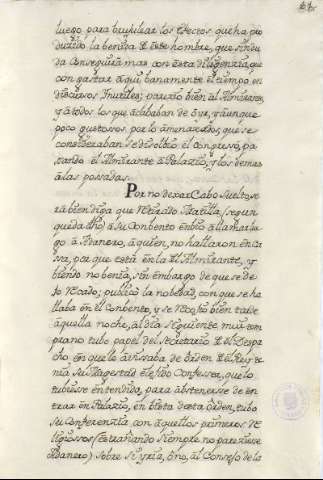 luego para brujulear los efectos que ha pro
duzido la benida de este hombre, que sin du
da conseguirá mas con esta diligenzia, que
con gastar aqui banamente el tiempo en
discursos Inutiles; parezio bien al Almirante,
y a todos los que acababan de oyr, y aunque
poco gustosos por lo aminarados, que se
consideraban se disolbio el congresso, pa
sando el Almirante a Palazio, y los demas
a las possadas.
Por no dexar Cabo suelto se
rá bien diga que retirado Matilla (segun
queda dho) a su Conbento enbio a llamar lue
go a Adanero, a quien, no hallaron en ca
ssa, por que esta en la del Almirante, y
biendo no benia, sin embargo de que se de
jo recado; publicò la nobedad, con que se ha
llaba en el Conbento, y se recojio bien tarde
aquella noche, al dia siguiente mui tem
prano tubo papel del secretario del Despa
cho en que le avisaba de orden del Rey te
nia su Magestad electo Confessor, que lo
tubiese entendido, para abstenerse de en
trar en Palazio, en vista desta orden, tubo
su Conferenzia con aquellos primeros Re
ligiossos (extrañando siempre no pareziese
Adanero) sobre si yria, ò no, al Consejo de la